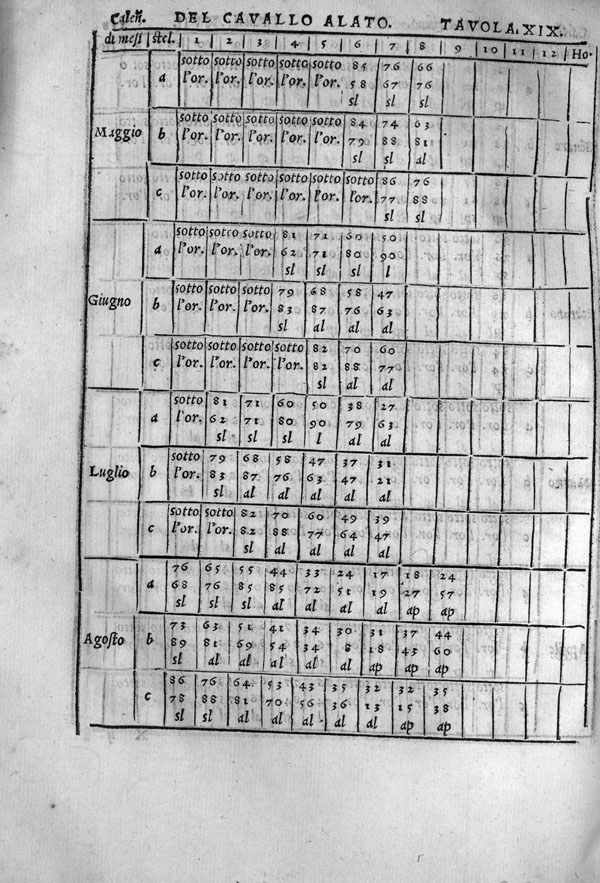 Caleñ. DEL CAVALLO ALATO. TAVOLA. XIX.
di mesi stel. 1 2 3 4 5 6 7 8 9 10 11 12 Ho.
sotto sotto sotto sotto sotto 85 76 66
a l'or. l'or. l'or. l'or. l'or. 58 67 76
sl sl sl
sotto sotto sotto sotto sotto 84 74 63
Maggio b l'or. l'or. l'or. l'or. l'or. 79 88 81
sl sl al
sotto sotto sotto sotto sotto sotto 86 76
c l'or. l'or. l'or. l'or. l'or. l'or. 77 88
sl sl
sotto sotto sotto 81 71 60 50
a l'or. l'or. l'or. 62 71 80 90
sl sl sl l
sotto sotto sotto 79 68 58 47
Giugno b l'or. l'or. l'or. 83 87 76 63
sl al al al
sotto sotto sotto sotto 82 70 60
c l'or. l'or. l'or. l'or. 82 88 77
sl al al
sotto 81 71 60 50 38 27
a l'or. 62 71 80 90 79 63
sl sl sl l al al
sotto 79 68 58 47 37 31
Luglio b l'or. 83 87 76 63 47 21
sl al al al al al
sotto sotto 82 70 60 49 39
c l'or. l'or. 82 88 77 64 47
sl al al al al
76 65 55 44 33 24 17 18 24
a 68 76 85 85 72 51 19 27 57
sl sl sl al al al al ap ap
73 63 51 41 34 30 31 37 44
Agosto b 89 81 69 54 34 8 18 43 60
sl al al al al al ap ap ap
86 76 64 53 43 35 32 32 35
c 78 88 81 70 56 36 13 15 38
sl sl al al al al al ap ap